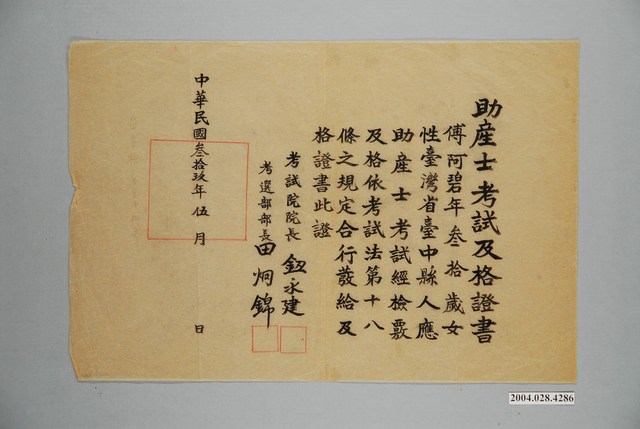 助產士考試及格證書
傅阿碧年叁拾歲女
性臺灣省臺中縣人應
助產士考試經檢覈
及格依考試法第十八
條之規定合行發給及
格證書此證
考試院院長 鈕永建
考選部部長 田炯錦
中華民國叁拾玖年伍月 日
2004.028.4286